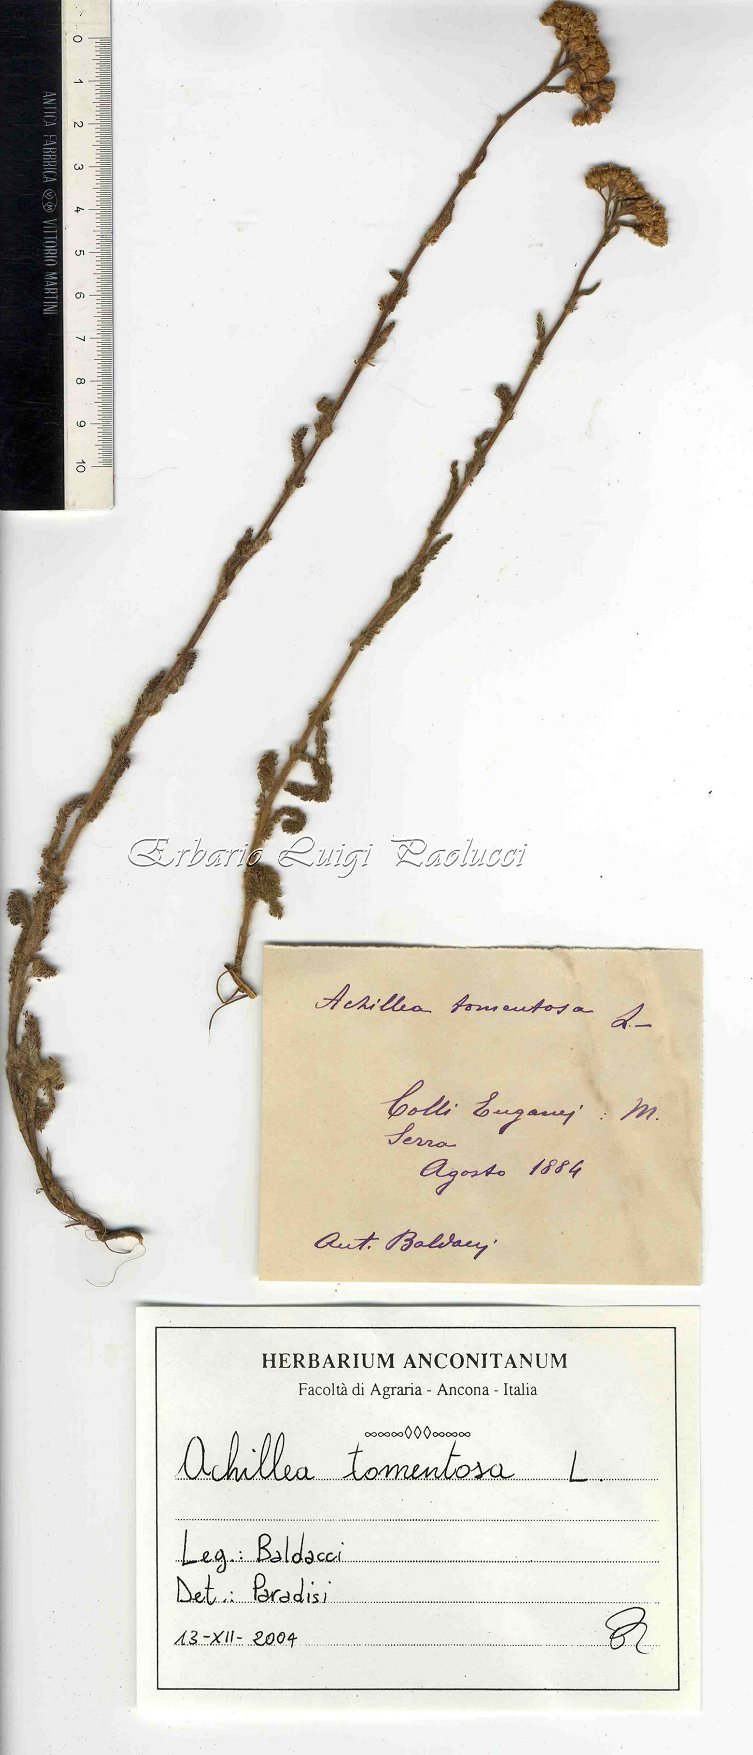 0
1
2
3
4
5
6
7
8
9
10
ANTICA FABBRICA VITTORIO MARTINI
Erbario Luigi Paolucci
Achillea tomentosa L.
Colli Euganej : M.
Serra
Agosto 1884
Ant. Baldacij
HERBARIUM ANCONITANUM
Facoltà di Agraria - Ancona - Italia
Achillea tomentosa L.
Leg.: Baldacci
Det.: Paradisi
13-XII-2004